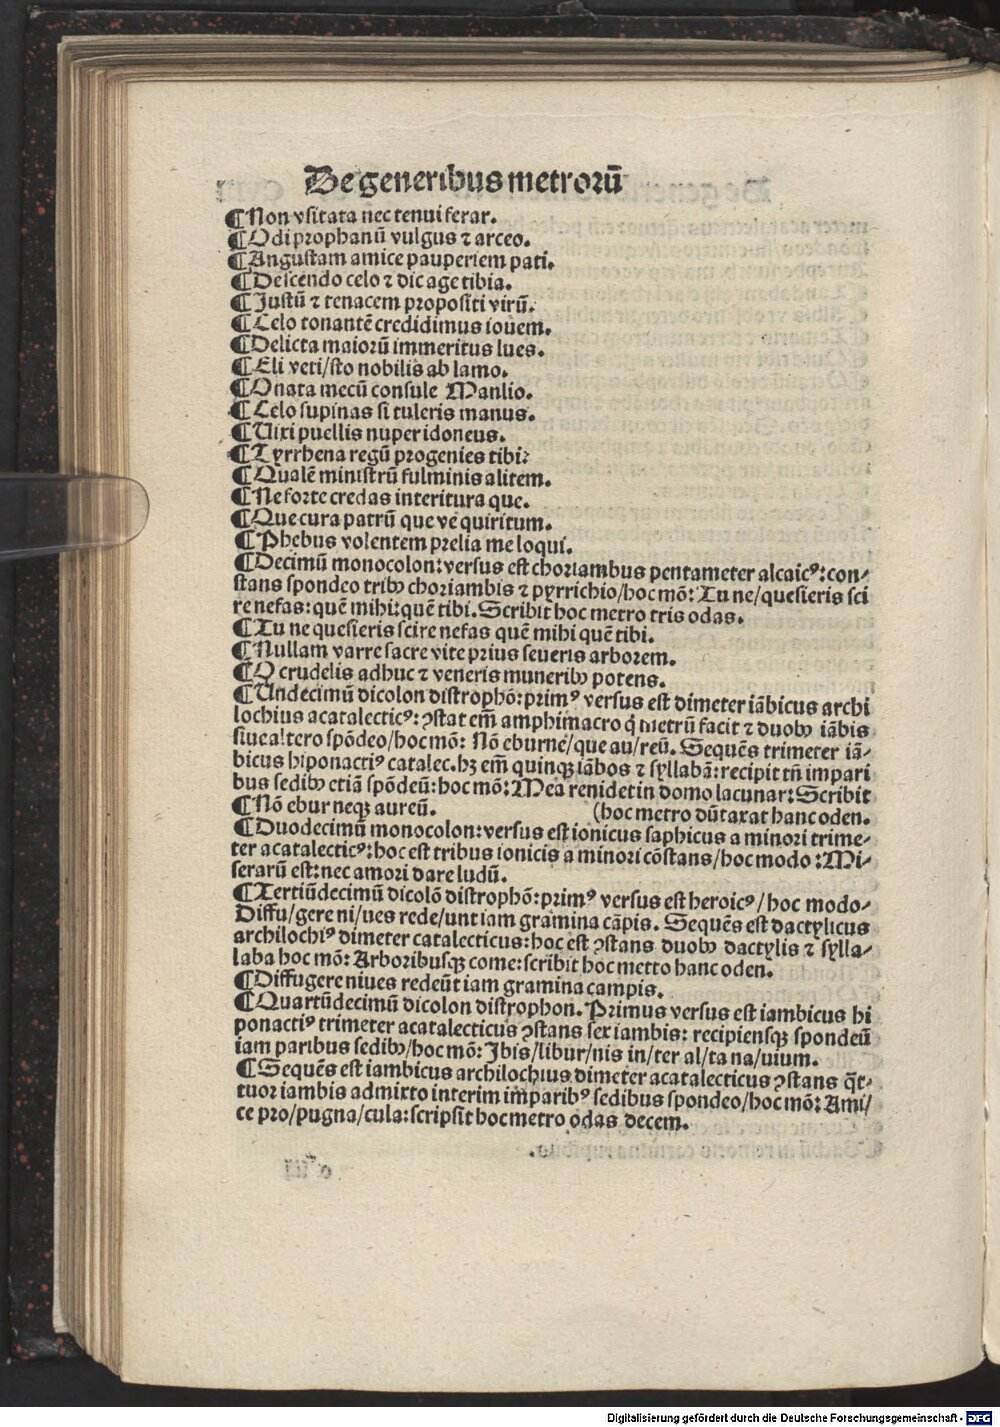 De generibus metrorū
¶Non vsitata nec tenui ferar.
¶Odi prophanū vulgus ⁊ arceo.
¶Angustam amice pauperiem pati.
¶Descendo celo ⁊ dic age tibia.
¶Justū ⁊ tenacem propositi virū.
¶Celo tonantē credidimus iouem.
¶Delicta maiorū immeritus lues.
¶Eli veti/sto nobilis ab lamo.
¶O nata mecū consule Manlio.
¶Celo supinas si tuleris manus.
¶Uixi puellis nuper idoneus.
¶Tyrrhena regū progenies tibi:
¶Qualē ministrū fulminis alitem.
¶Ne forte credas interitura que.
¶Que cura patrū que ve quiritum.
¶Phebus volentem prelia me loqui.
¶Decimū monocolon: versus est choriambus pentameter alcaicꝰ: con⸗
stans spondeo tribꝰ choriambis ⁊ pyrrichio/hoc mō: Tu ne/quesieris sci
re nefas: quē mihi: quē tibi. Scribit hoc metro tris odas.
¶Tu ne quesieris scire nefas quē mihi quē tibi.
¶Nullam varre sacre vite prius seueris arborem.
¶O crudelis adhuc ⁊ veneris muneribꝰ potens.
¶Undecimū dicolon distrophō: primꝰ versus est dimeter iābicus archi
lochius acatalecticꝰ: ꝯstat em̄ amphimacro q̇ metrū facit ⁊ duobꝰ iābis
siue altero spōdeo/hoc mō: Nō eburne/que au/reū. Sequēs trimeter iā⸗
bicus hiponactiꝰ catalec. hꝫ em̄ quinqꝫ iābos ⁊ syllabā: recipit tn̄ impari
bus sedibꝰ etiā spōdeū: hoc mō: Mea renidet in domo lacunar: Scribit
¶Nō ebur neqꝫ aureū. (hoc metro dūtaxat hanc oden.
¶Duodecimū monocolon: versus est ionicus saphicus a minori trime⸗
ter acatalecticꝰ: hoc est tribus ionicis a minori cōstans/hoc modo: Mi⸗
serarū est: nec amori dare ludū.
¶Tertiūdecimū dicolō distrophō: primꝰ versus est heroicꝰ/hoc modo⸗
Diffu/gere ni/ues rede/unt iam gramina cāpis. Sequēs est dactylicus
archilochiꝰ dimeter catalecticus: hoc est ꝯstans duobꝰ dactylis ⁊ sylla⸗
laba hoc mō: Arboribusqꝫ come: scribit hoc metto hanc oden.
¶Diffugere niues redeūt iam gramina campis.
¶Quartūdecimū dicolon distrophon. Primus versus est iambicus hi
ponactiꝰ trimeter acatalecticus ꝯstans sex iambis: recipiensqꝫ spondeū
iam paribus sedibꝰ/hoc mō: Ibis/libur/nis in/ter al/ta na/uium.
¶Sequēs est iambicus archilochius dimeter acatalecticus ꝯstans q̄t⸗
tuor iambis admixto interim imparibꝰ sedibus spondeo/hoc mō: Ami/
ce pro/pugna/cula: scripsit hoc metro odas decem.
Digitalisierung gefördert durch die Deutsche Forschungsgemeinschaft - DFG